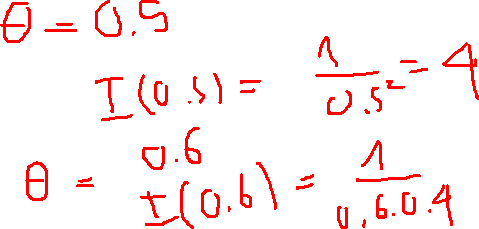 θ = 0.5
I(0.5) = 1/0.5² = 4
θ = 0.6
I(0.6) = 1/0.6.0.4